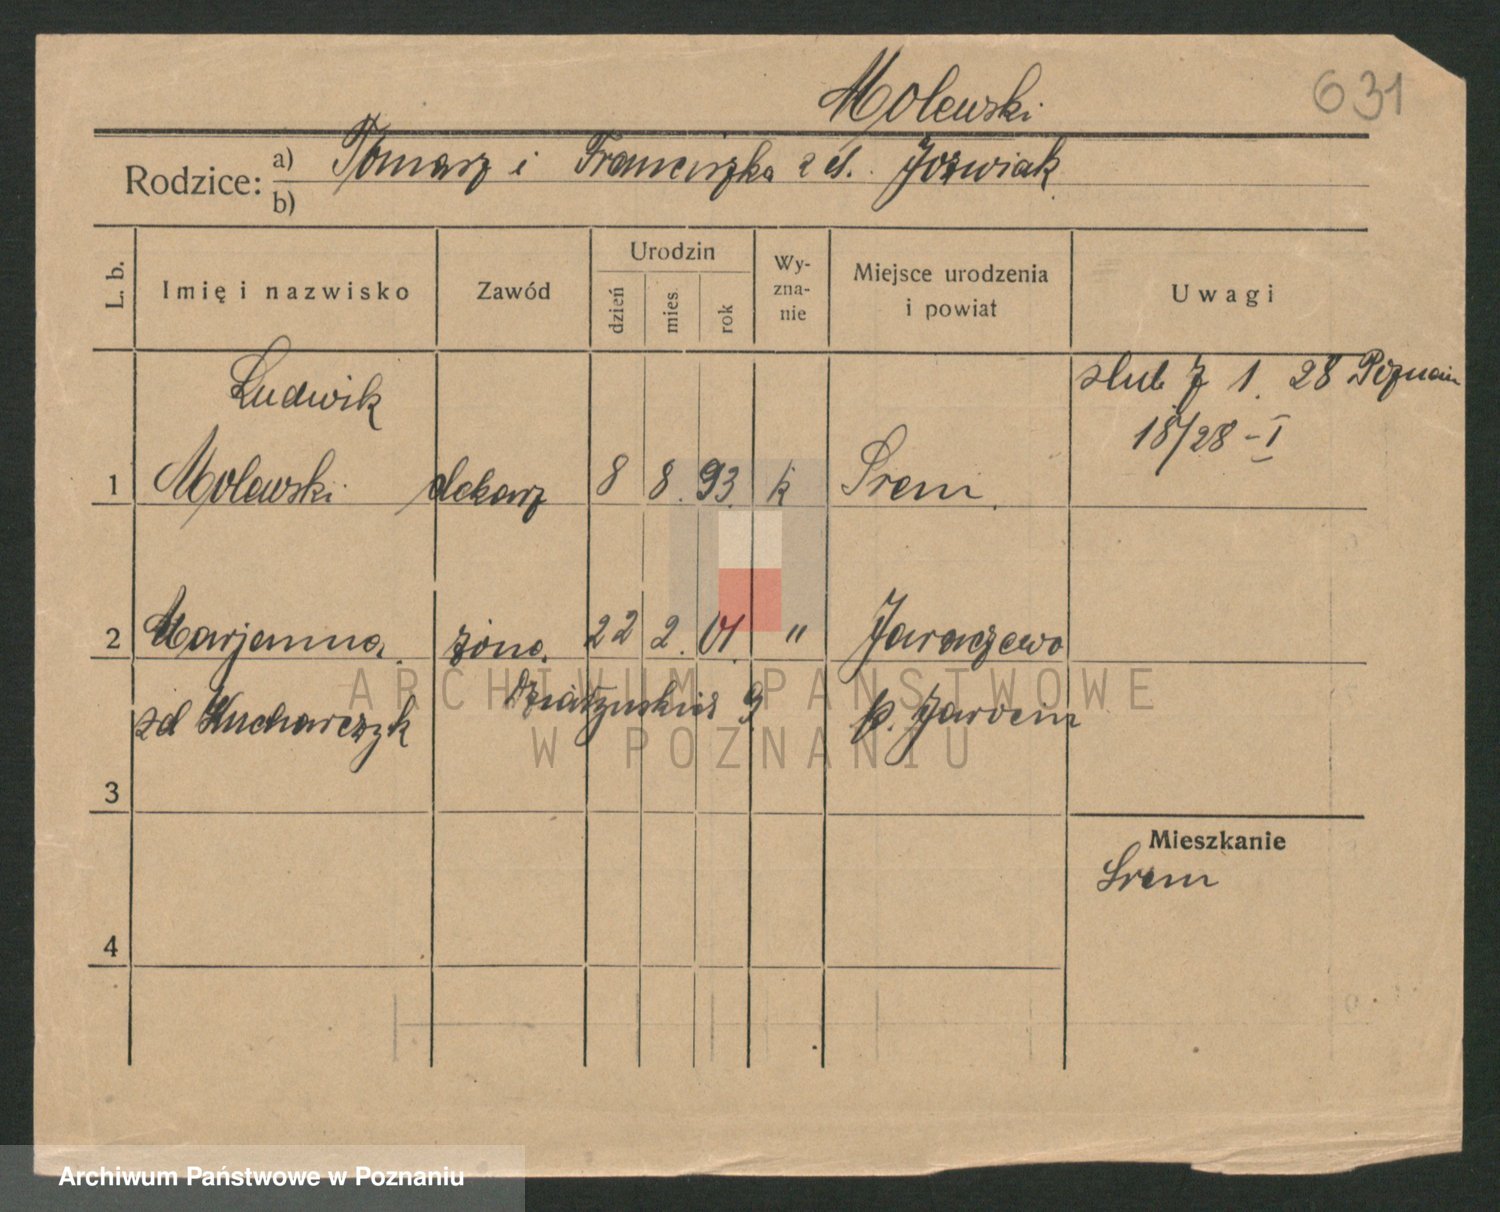 631
Molewski
Rodzice: a) Tomasz i Franciszka z d. Jozwiak
b)
L. b. Imię i nazwisko Zawód Urodzin dzień mies. rok Wyznanie Miejsce urodzenia i powiat Uwagi
ślub 7 1. 28 Poznań
Ludwik
18/28 - I
1 Molewski dekarz 8 8. 93. k Śrem.
2 Marjanna. żona. 22 2. 01. " Jaraczewo
Działyńskich 9
zd Kucharczyk p. Jarocin
3
Mieszkanie
Śrem
4
ARCHIWUM PAŃSTWOWE
W POZNANIU
Archiwum Państwowe w Poznaniu